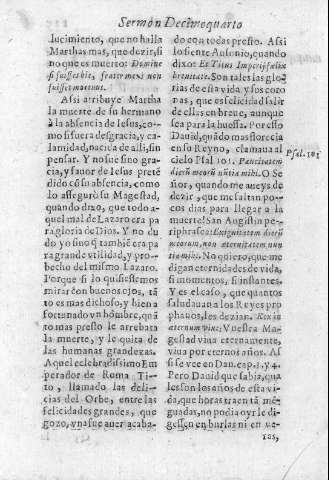 Sermón Decimoquarto
lucimiento, que no halla
Marthas mas, que dezir, si
no que es muerto: Domine
si fuisses hic, frater meus non
fuisset mortuus.
Assi atribuye Martha
la muerte de su hermano
à la absencia de Iesus, co-
mo si fuera desgracia, y ca-
lamidad, nacida de alli, sin
pensar. Y no fue sino gra-
cia, y fauor de Iesus prete
dido cō su absencia, como
lo assegurò su Magestad,
quando dixo, que todo a-
quel mal de Lazaro era pa
ra gloria de Dios. Y no du
do yo sino q̃ tambiē era pa
ra grande vtilidad, y pro-
becho del mismo Lazaro.
Porque si lo quisiessemos
mirar con buenos ojos, tā
to es mas dichoso, y bien a
fortunado vn hombre, quā
to mas presto le arrebata
la muerte, y le quita de
las humanas grandezas.
Aquel celebradissimo Em
perador de Roma Ti-
to, llamado las deli-
cias del Orbe, entre las
felicidades grandes, que
gozo, vna fue auer acaba-
do con todas presto. Assi
lo siente Ausonio, quando
dixo: Et Titus Imperij fœlix
breuitate. Son tales las glo
rias de esta vida, y sus coro
nas, que es felicidad salir
de ellas en breue, aunque
sea para la huessa. Por esso
Dauid, quādo mas florecia
en su Reyno, clamaua al
cielo Psal 101. Paucitatem
dierū meorū nūtia mihi. O Se
ñor, quando me aueys de
dezir, que me faltan po-
cos dias para llegar a la
muerte San Augustin pe-
riphrasea: Exiguitatem dierū
meorum, non æternitatem nun
tia mihi. No quiero, que me
digan eternidades de vida,
si momentos, si instantes.
Y es el caso, que quantos
saludauan a los Reyes pro
phanos, les dezian: Rex in
æternum viue: Vuestra Ma-
gestad viua eternamente,
viua por eternos años. As
si se vee en Dan. cap. 3. y 4.
Pero Dauid que sabia, qua
les son los años de esta vi-
da, que horas traen tā mē
guadas, no podia oyr le di-
gessen en burlas ni en ve-
ras,
Psal. 101